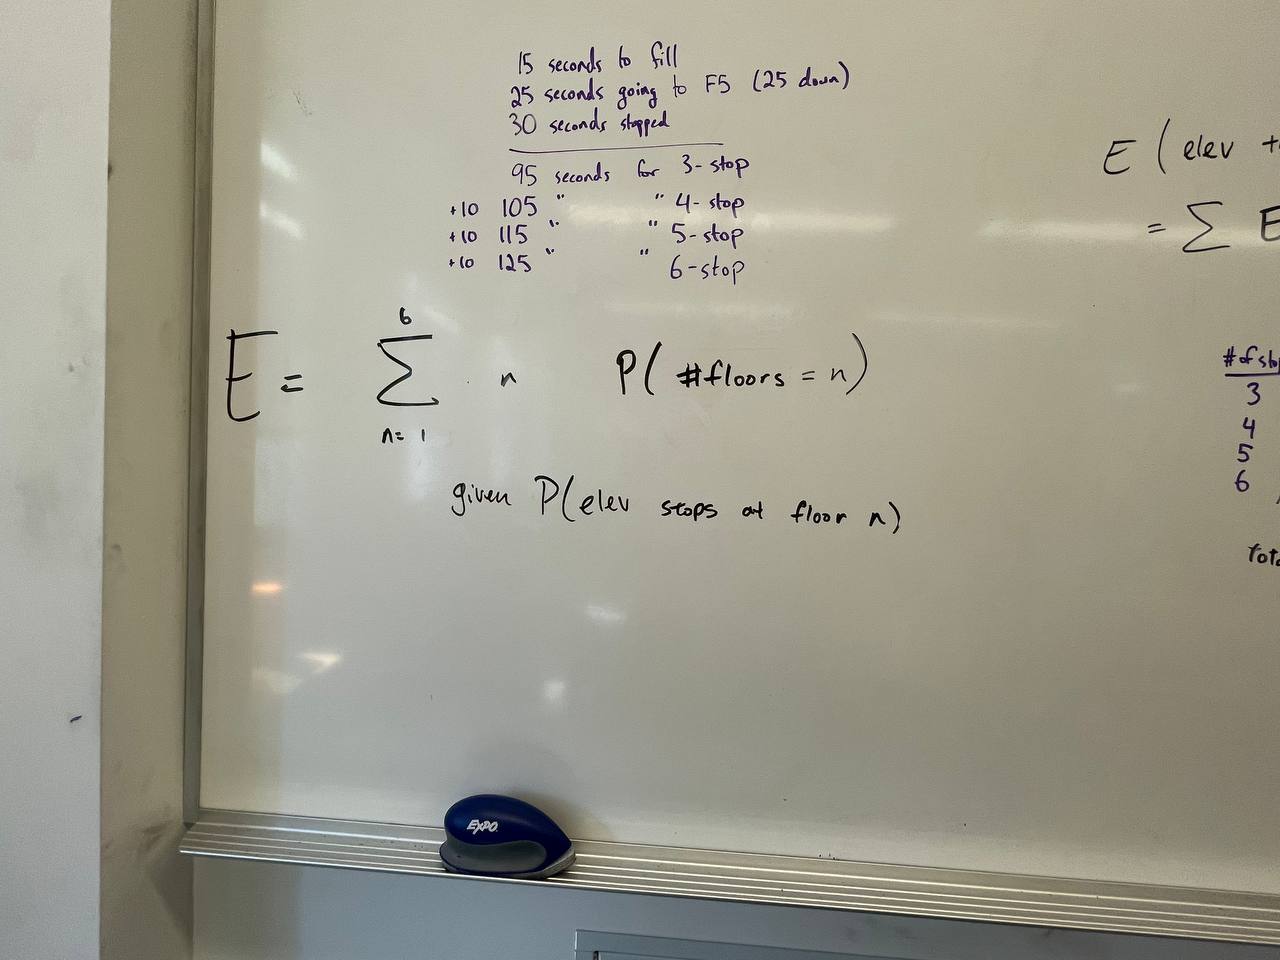 15 seconds to fill
25 seconds going to F5 (25 down)
30 seconds stopped
95 seconds for 3-stop
+10 105 " " 4-stop
+10 115 " " 5-stop
+10 125 " " 6-stop
E = 6 ∑ n=1 n P(#floors = n)
given P(elev stops at floor n)
E(elev
= ∑ E
#of
3
4
5
6
EXPO